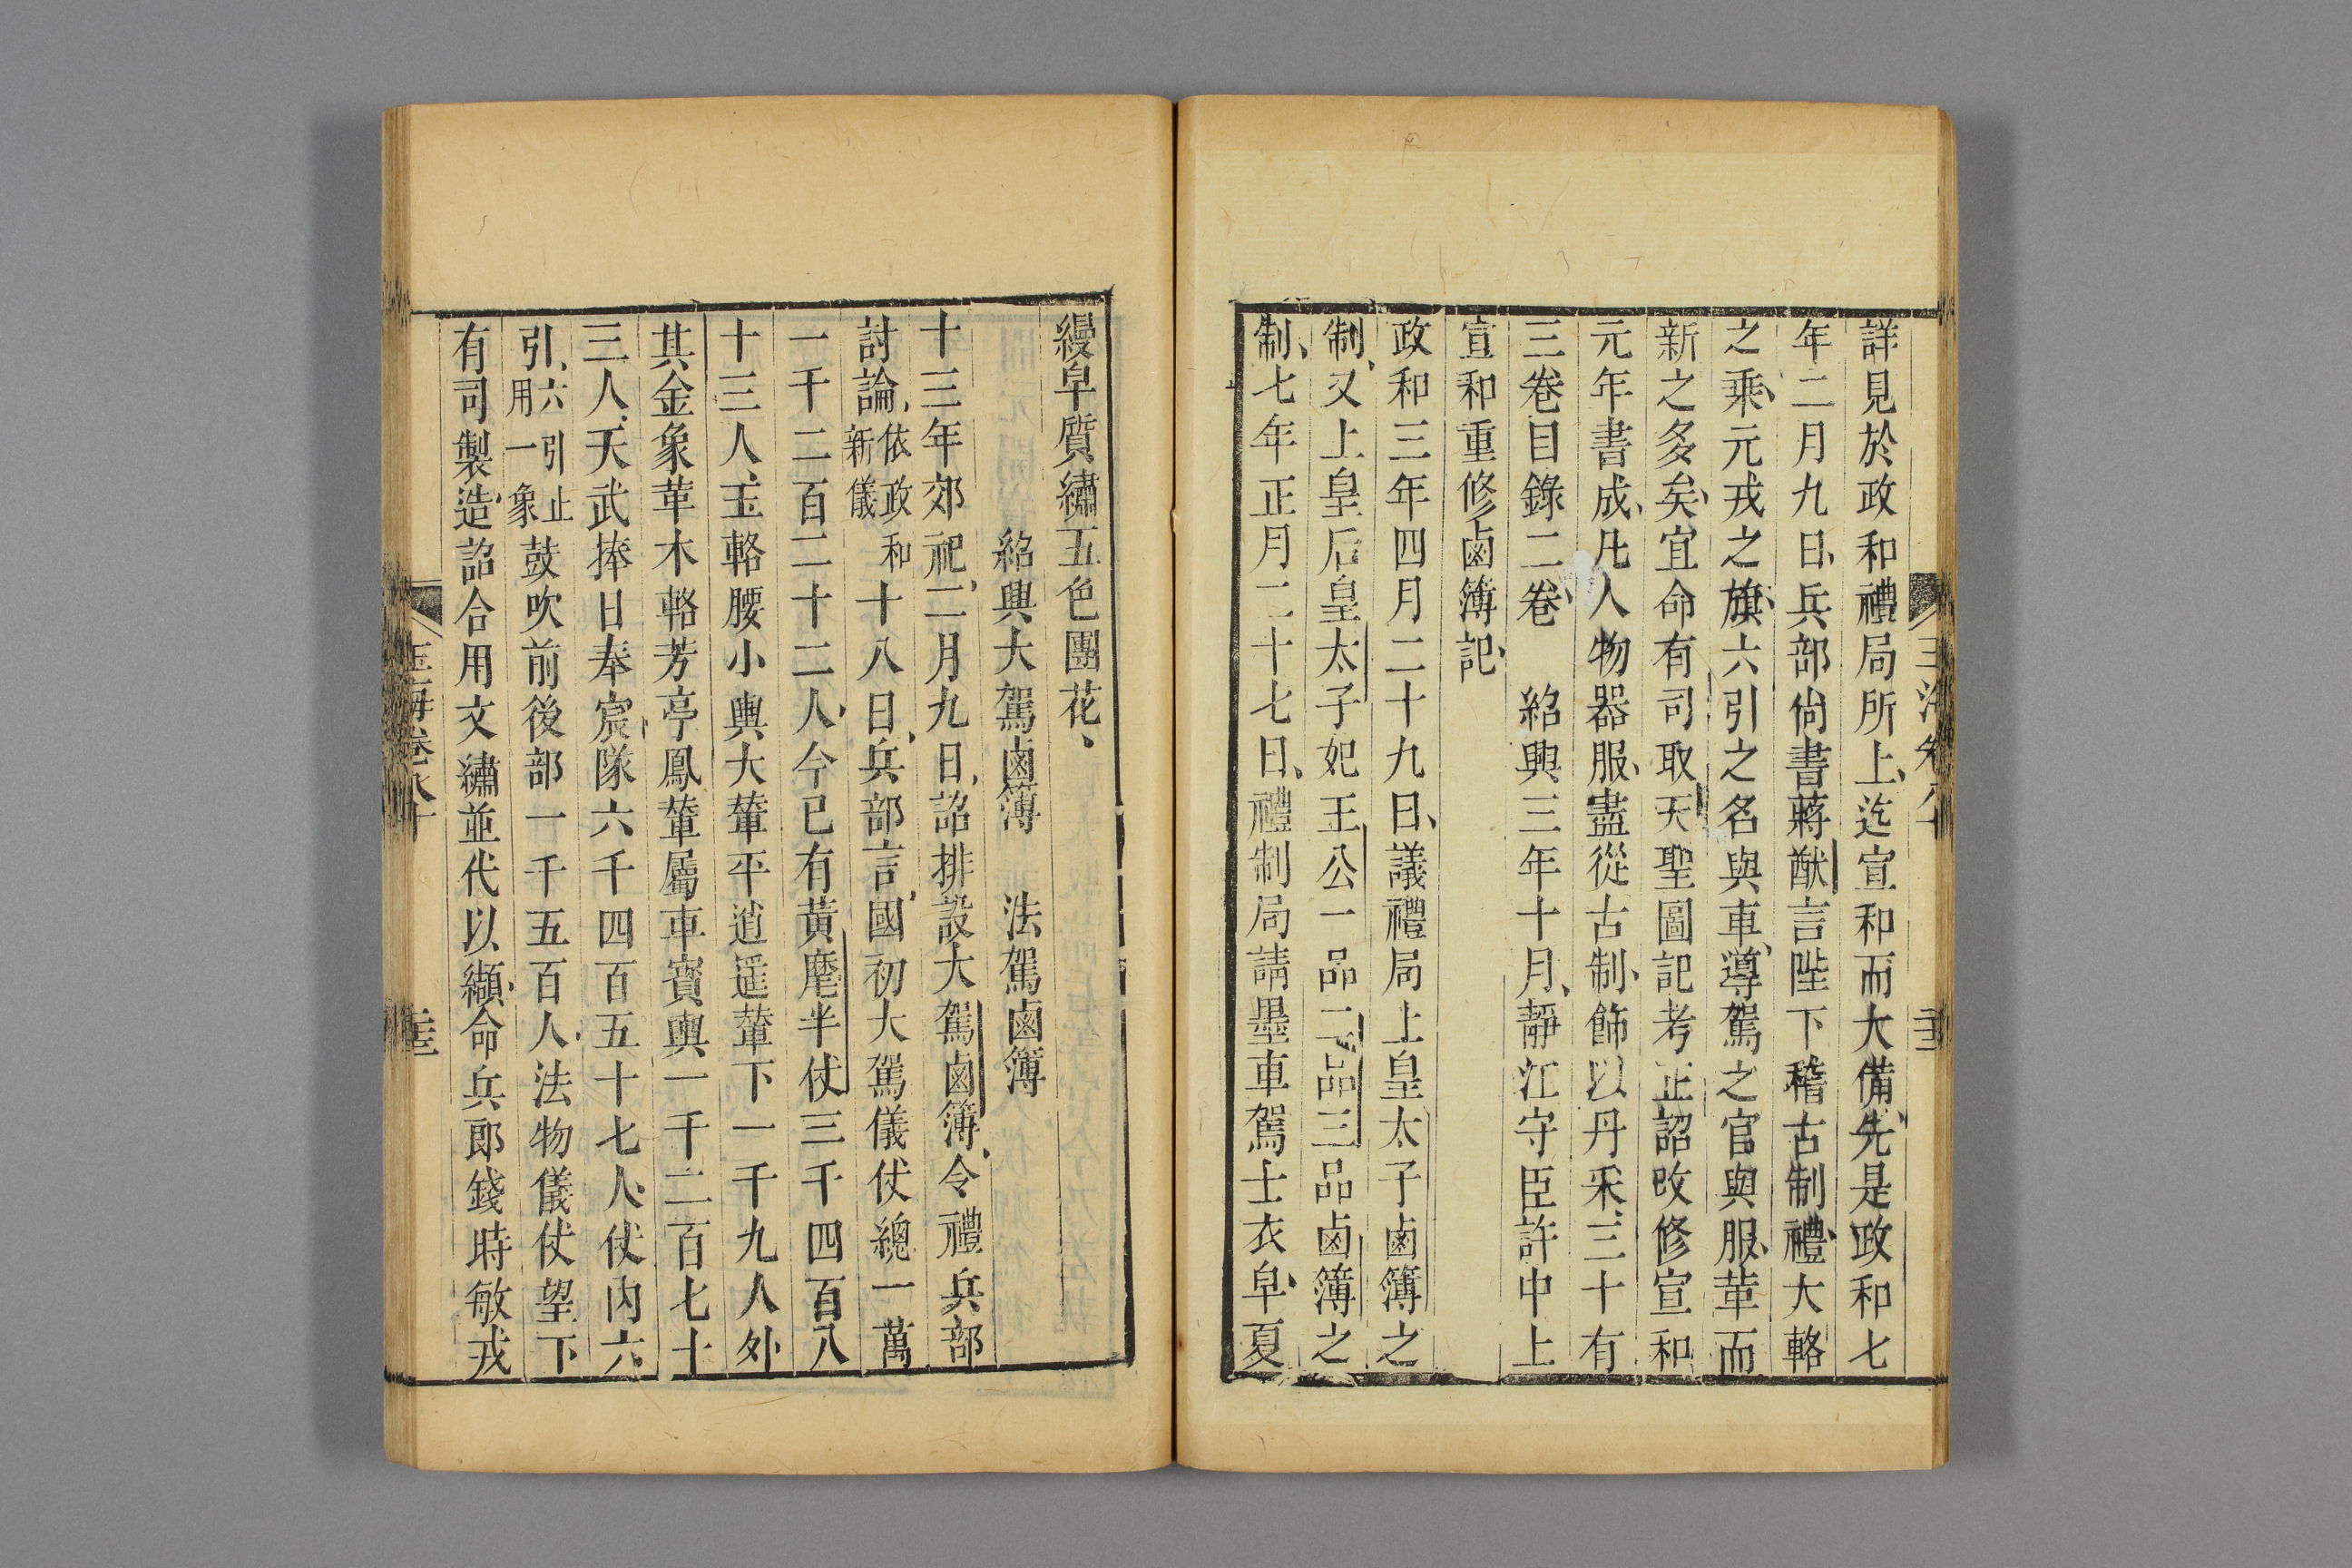 詳見於政和禮局所上、迄宣和而大備、先是政和七
年二月九日、兵部尙書蔣猷言陛下稽古制禮、大輅
之乘、元戎之旗、六引之名與車、導駕之官與服、革而
新之多矣、宜命有司取天聖圖記考正詔改修宣和
元年書成、凡人物器服、盡從古制、飾以丹采、三十有
三卷目錄二卷、　紹興三年十月、靜江守臣許中上
宣和重修鹵簿記、
政和三年四月二十九日、議禮局上皇太子鹵簿之
制、又上皇后皇太子妃王公一品二品三品鹵簿之
制、七年正月二十七日、禮制局請墨車駕士衣皁、夏
縵皁質繡五色團花、
紹興大駕鹵簿　法駕鹵簿
十三年郊祀、二月九日、詔排設大駕鹵簿、令禮兵部
討論、依政和新儀十八日、兵部言、國初大駕儀仗總一萬
一千二百二十二人、今已有黃麾半仗三千四百八
十三人、玉輅腰小輿大輦平逍遥輦下一千九人外
其金象革木輅芳亭鳳輦屬車寶輿一千二百七十
三人、天武捧日奉宸隊六千四百五十七人、仗內六
引、六引止用一象鼓吹前後部一千五百人、法物儀仗望下
有司製造、詔合用文繡並代以纈、命兵郎錢時敏戎
玉海卷八十